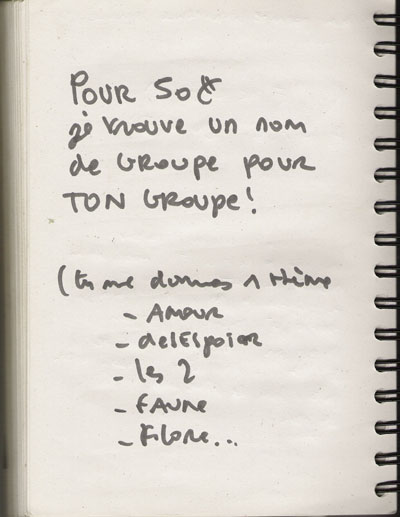 POUR 50 €
je trouve un nom
de GROUPE pour
TON GROUPE!
(tu me donnes 1 thème
- AMOUR
- délEspoier
- les 2
- FAUNE
- FLORE...